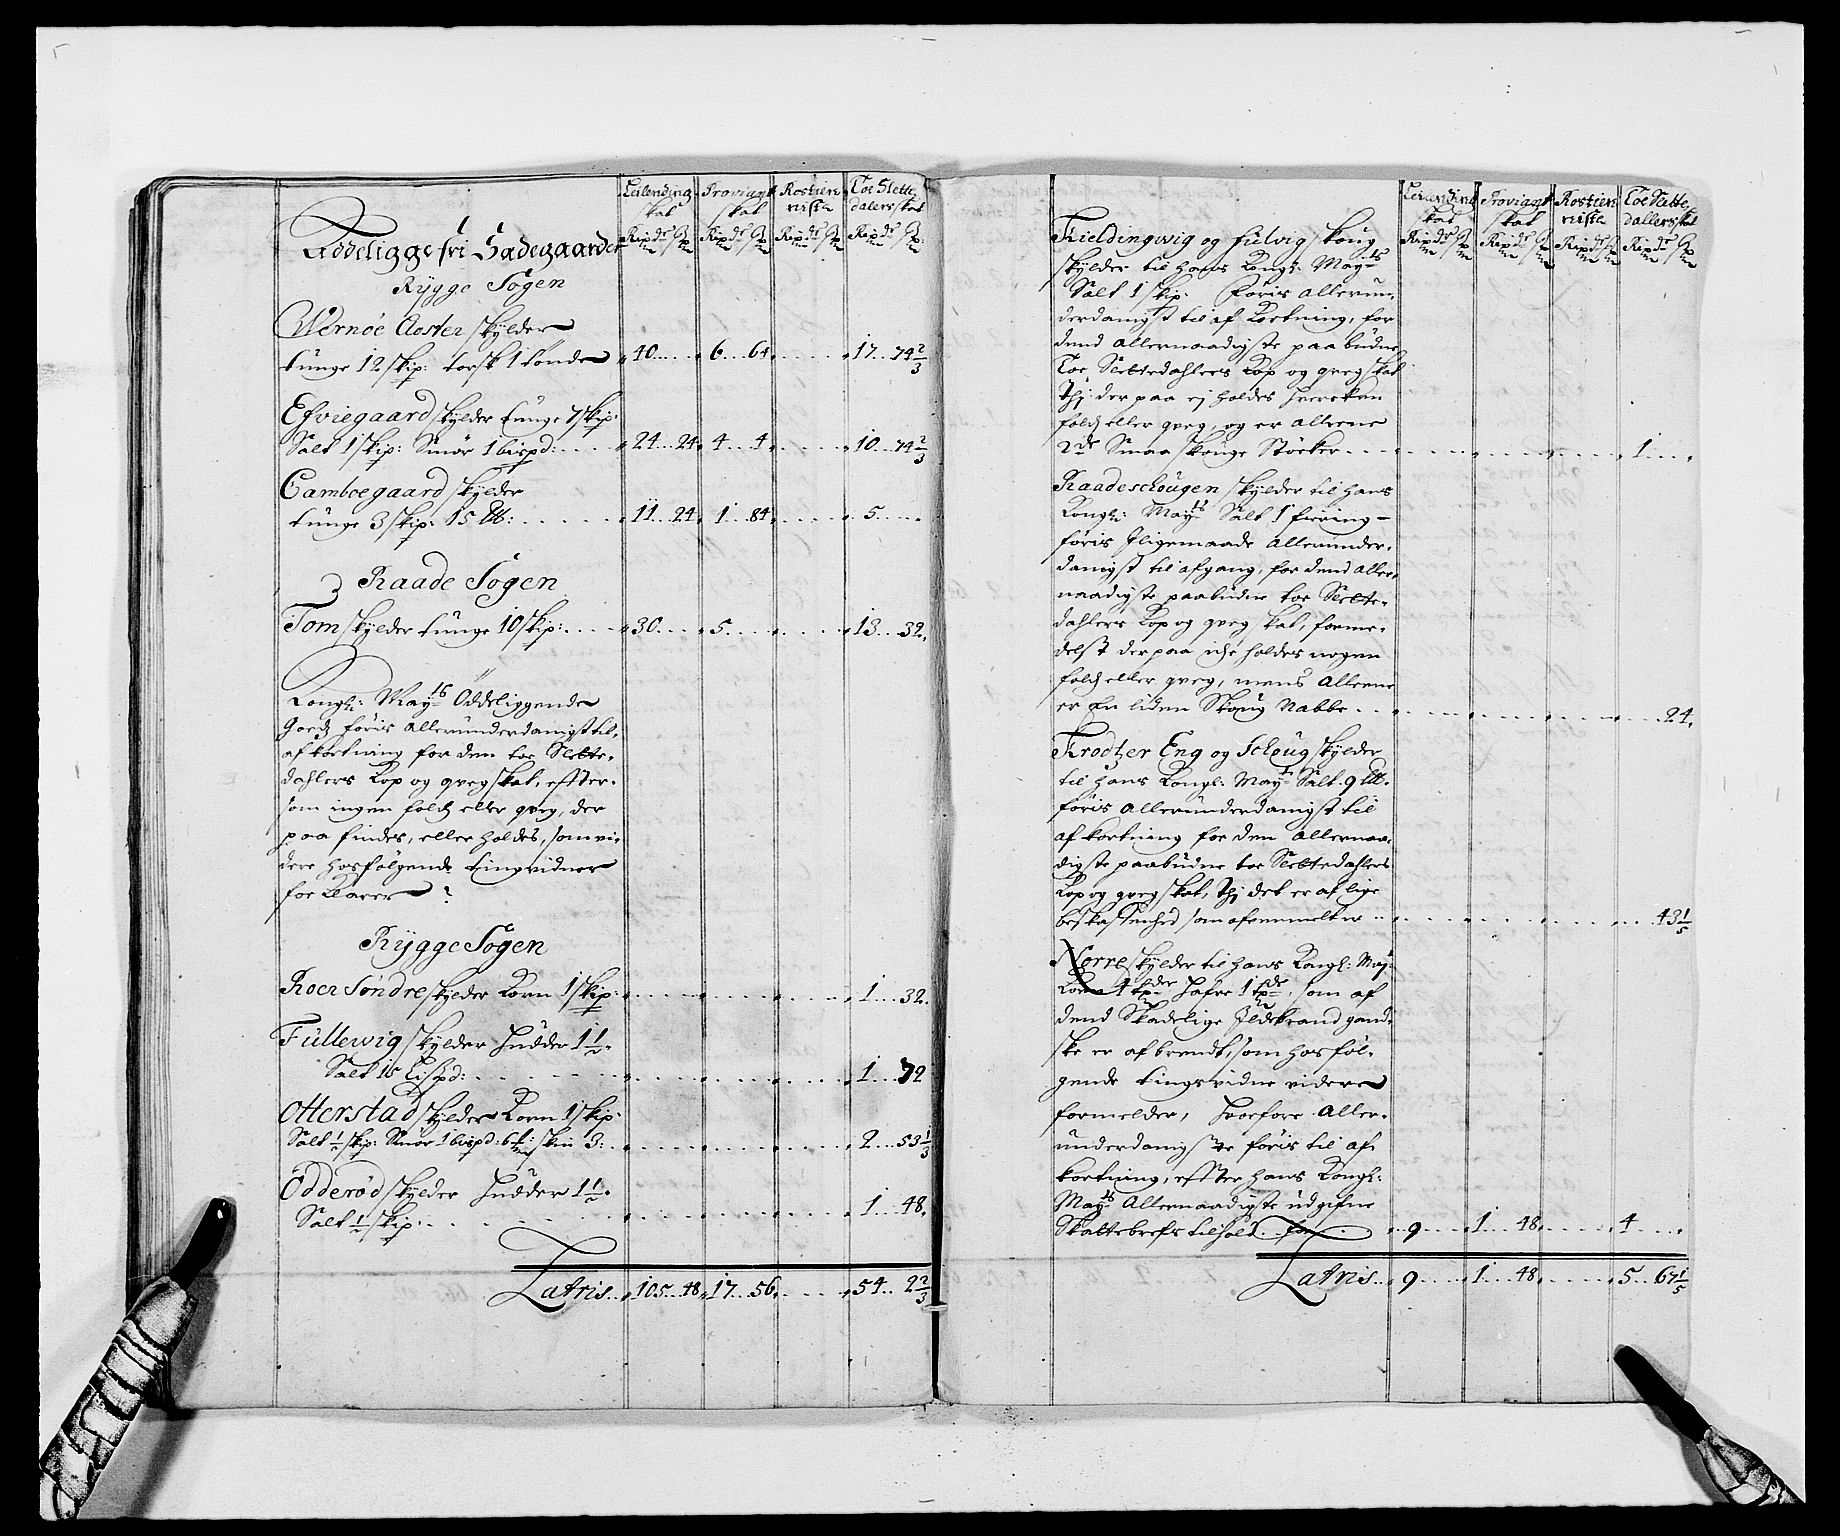 Leilending Proviant Rostien Toe Slette
skat skat niste dalerskat
Rixdr ß Rixdr ß Rixdr ß Rixdr ß
Øddeliggefri Sadegaarder
Rygge Sogen
Wernøe Closter skylder
tunge 12 skip: torsk 1 tønde 40 6 64 17 74 2/3
Efviegaard skylder tunge 7 skip
Salt 1 skip: Smør 1 bispd: 24 24 4 4 10 74 2/3
Camboegaard skylder
tunge 3 skip: 15 lb: 11 24 1 84 5
Raade Sogen
Tom skylder tunge 10 skip: 30 5 13 32
Kongl: Mayts Øddeliggende
Goedz føris allerunderdanigst til
afkortning for den toe Slette-
dahlers Kop og qvegskat, effter-
som ingen folch eller qveg, der
paa findes, eller holdes, som vi-
dere hosfølgende tingsvidner
forklarer
Rygge Sogen
Roer Søndre skylder Korn 1 skip: 1 32
Füllewig skylder Hudder 1 1/2
Salt 15 Lispd: 1 72
Otterstad skylder Korn 1 skip:
Salt 1/2 skip: Smør 1 bispd: 6 skin 3: 2 53 1/3
Odderød skylder Hudder 1 1/2
Salt 1/2 skip: 1 48
Latris 105 48 17 56 54 2 2/3
Leilending Proviant Rostien Toe Slette
skat skat niste dallerskat
Rixdr ß Rixdr ß Rixdr ß Rixdr ß
Kieldingwig og fulvig skoug
skylder til Hans Kongl: Mayts
Salt 1 skip: Føris allerun-
derdanigst til afkortning, for
dend allernaadigste paabudne
Toe Slettedahlers Kop og qvegskat
thj der paa ej holdes huercken
folch eller qveg, og er alleene
2de Smaa skouge Støcker 1
Raadeschougen skylder til Hans
Kongl: Mayts Salt 1 fiering
føris Jligemaade allerunder-
danigst til afgang, for dend aller-
naadigste paabudne toe Slette-
dahlers Kop og qvegskat, forme-
delst der paa iche holdes nogen
folch eller qveg, mens alleene
er En liden Skoug Nabbe 24
Krodtzer Eng og Schoug skylder
til Hans Kongl: Mayts Salt 9 lb
føris allerunderdanigst til
afkortning for den allernaa-
digste paabudne toe Slettedahlers
Kop og qvegskat, thj det er af lige
beskaffenhed som ofvenmelte 43 1/5
Norre skylder til Hans Kongl: May:
Korn 1 tønde Hafre 1 tønde, som af
dend Skadelige Jldebrand gand-
ske er afbrendt, som hosføl-
gende tingsvidne videre
formelder, Huorfore aller-
underdanigste føris til af-
kortning, effter Hans Kongl:
Mayts Allernaadigste udgifne
Skattebrefs tilhold for 9 1 48 4
Latris 9 1 48 5 67 1/5